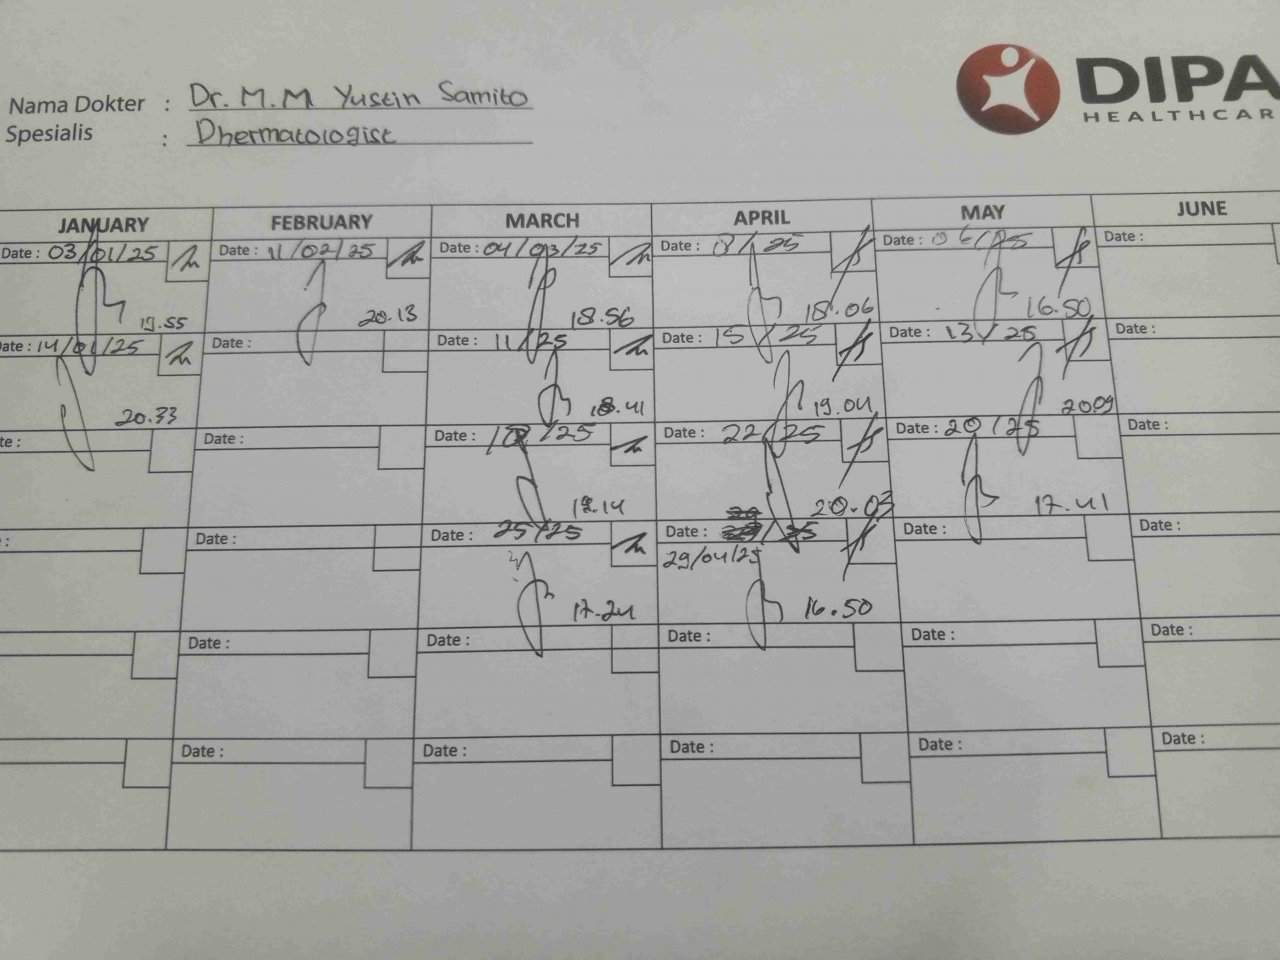 DIPA
HEALTHCAR
Nama Dokter : Dr. M.M Yustin Samito
Spesialis : Dhermatologist
JANUARY FEBRUARY MARCH APRIL MAY JUNE
Date : 03/01/25 Date : 11/02/25 Date : 04/03/25 Date : /25 Date : 06/25 Date :
19.55 20.13 18.56 18.06 16.50
Date : 14/01/25 Date : Date : 11/25 Date : 15/25 Date : 13/25 Date :
20.33 18.41 19.04 2009
te : Date : Date : /25 Date : 22/25 Date : 20/25 Date :
20.03 17.41
: Date : Date : 25/25 Date : Date : Date :
29/04/25
17.24 16.50
Date : Date : Date : Date : Date :
Date : Date : Date : Date : Date :